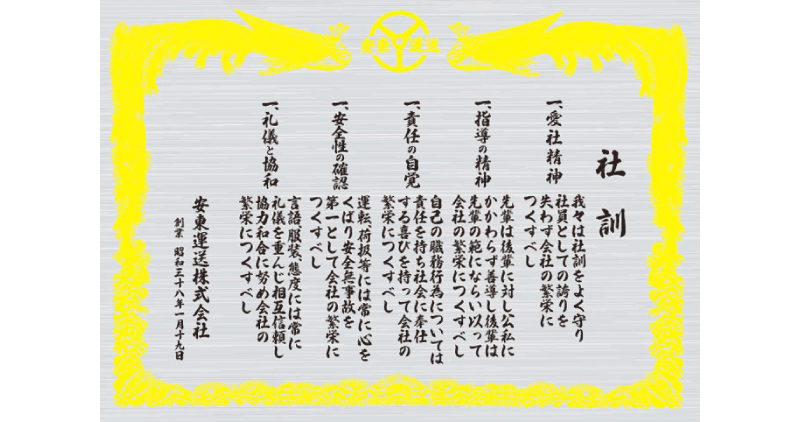 安東運送
社訓
一、愛社精神
我々は社訓をよく守り
社員としての誇りを
失わず会社の繁栄に
つくすべし
一、指導の精神
先輩は後輩に対し公私に
かかわらず善導し後輩は
先輩の範にならい以って
会社の繁栄につくすべし
一、責任の自覚
自己の職務行為については
責任を持ち社会に奉仕
する喜びを持って会社の
繁栄につくすべし
一、安全性の確認
運転、荷扱等には常に心を
くばり安全無事故を
第一として会社の繁栄に
つくすべし
一、礼儀と協和
言語、服装、態度には常に
礼儀を重んじ相互信頼し
協力和合に努め会社の
繁栄につくすべし
安東運送株式会社
創業 昭和三十八年一月十九日